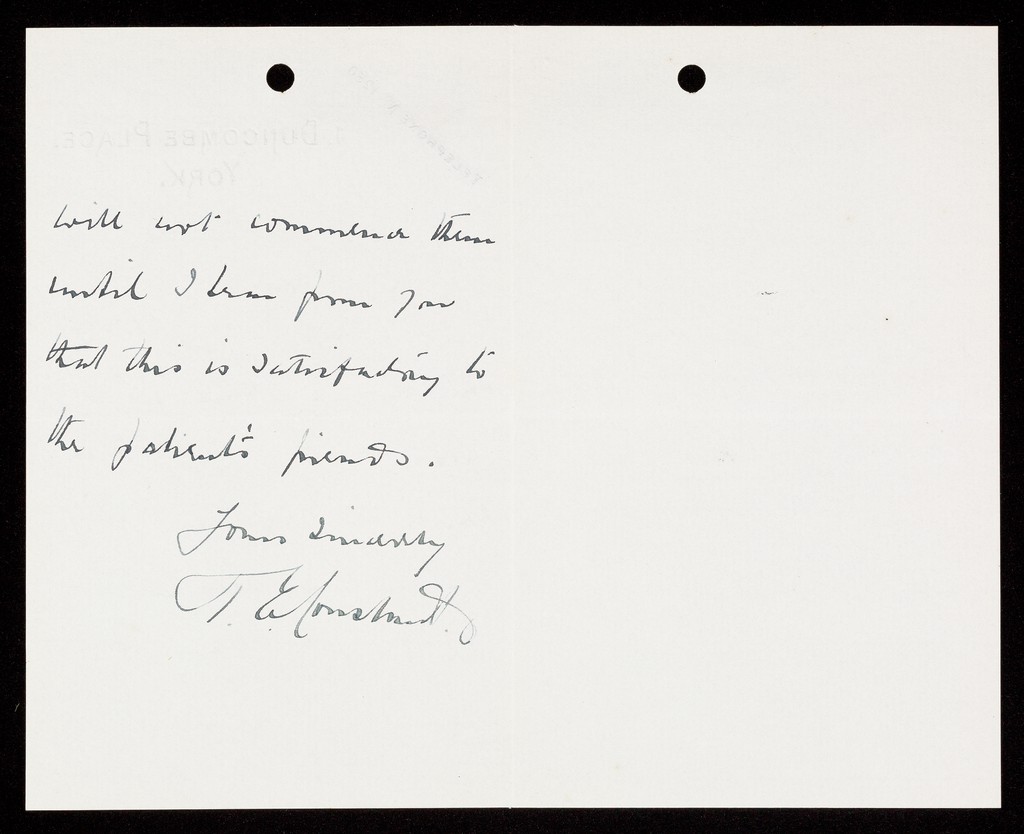 1, DUNCOMBE PLACE,
YORK.
will not commence them
until I hear from you
that this is satisfactory to
the patient's friends.
Yours sincerely
T. E. Constant.